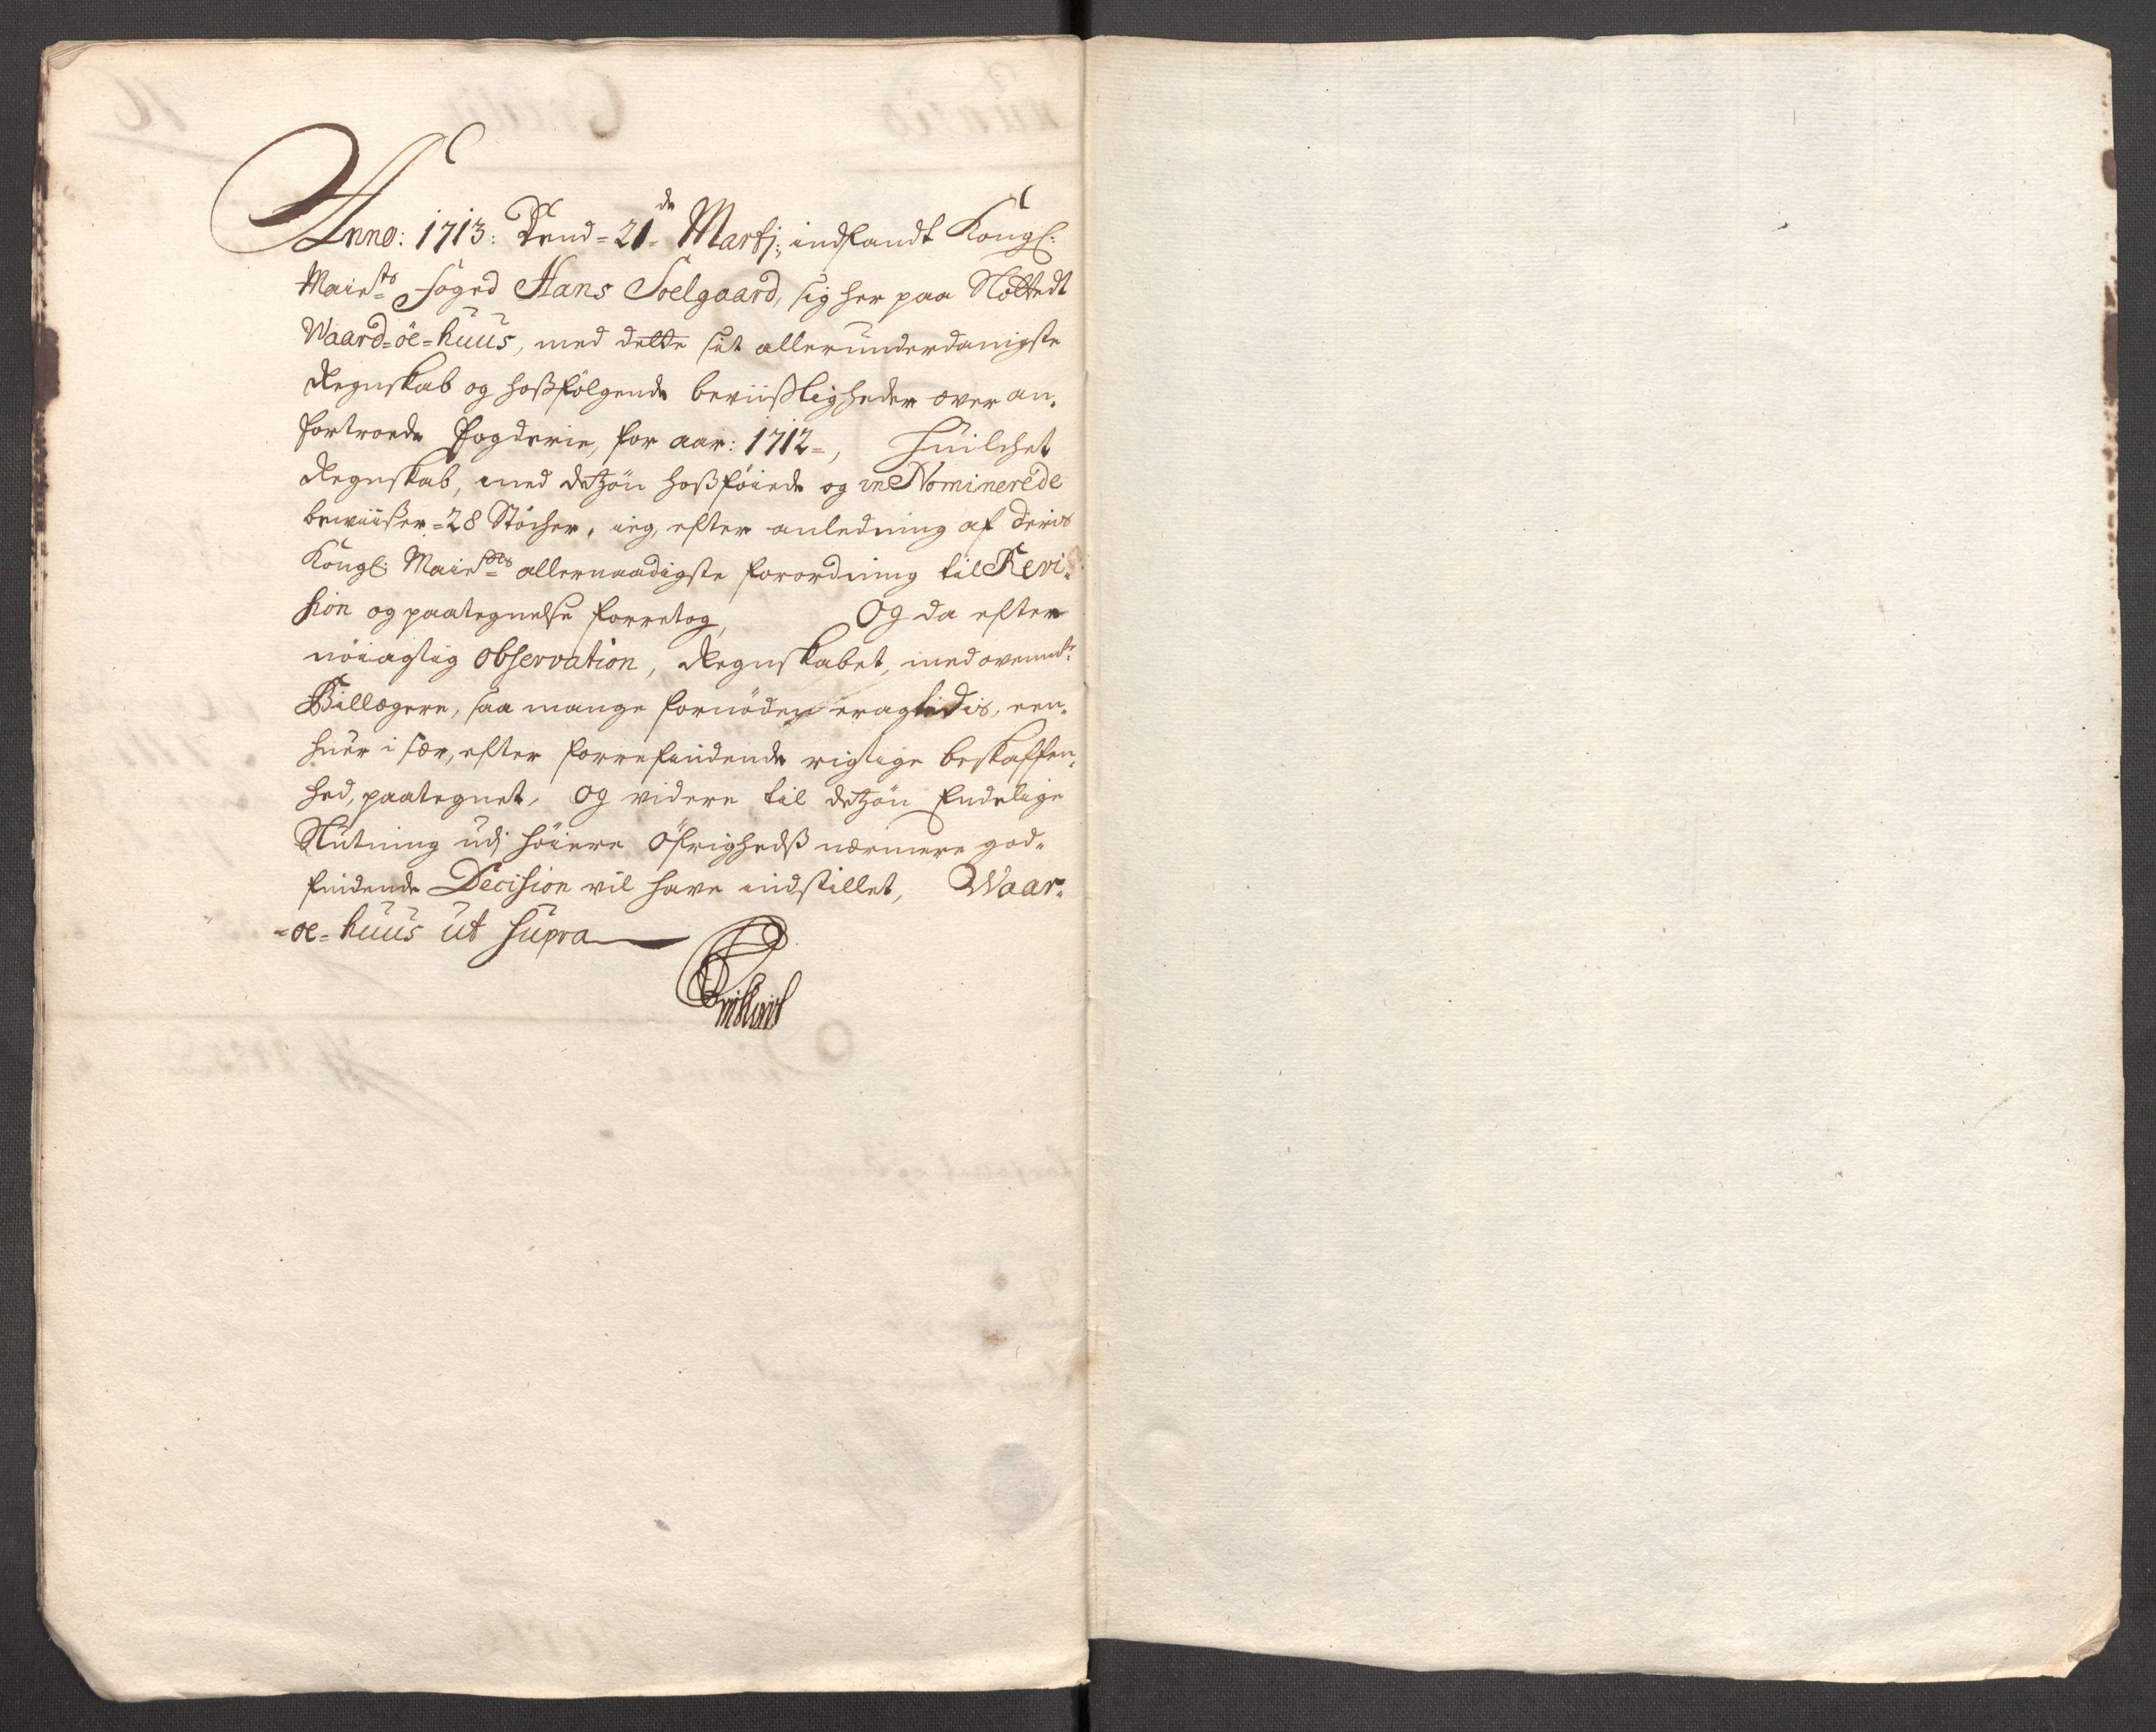 Anno: 1713: Dend=21de Martj: indfandt Kongl:
Maiests foged Hans Soelgaard, sig her paa Slottedt
Waard=öe=huus, med dette sit allerunderdanigste
Regnskab og hoßfölgende beviißligheder over an-
fortroede Fogderie, for aar: 1712=, huilchet
Regnskab, med detzön hoßföiede og in Nominerede
beviißer=28 Stöcher, ieg, efter anledning af deris
Kongl: Maiests allernaadigste forordning til Revi-
sion og paategnelse foretog, Og da efter
nöiagtig observation, Regnskabet, med ovenmelte
Billogere, saa mange fornöden eragtedis, een-
huer i sær, efter forrefindende rigtige beskaffen-
hed, paategnet, og videre til detzön Endelige
Slutning udj höiere öfrighedß nærmere god-
findende Decision vil have indstillet, Waar-
=öe=huus ut supra